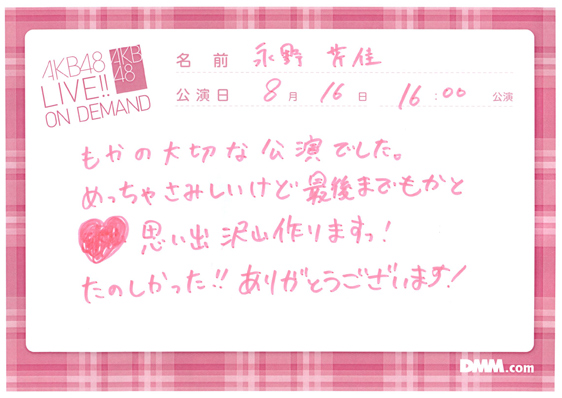 AKB48
LIVE!!
ON DEMAND
AKB
48
名前 永野芹佳
公演日 8月16日 16:00 公演
もかの大切な公演でした。
めっちゃさみしいけど最後までもかと
思い出沢山作りますっ!
たのしかった!!ありがとうございます!
DMM.com